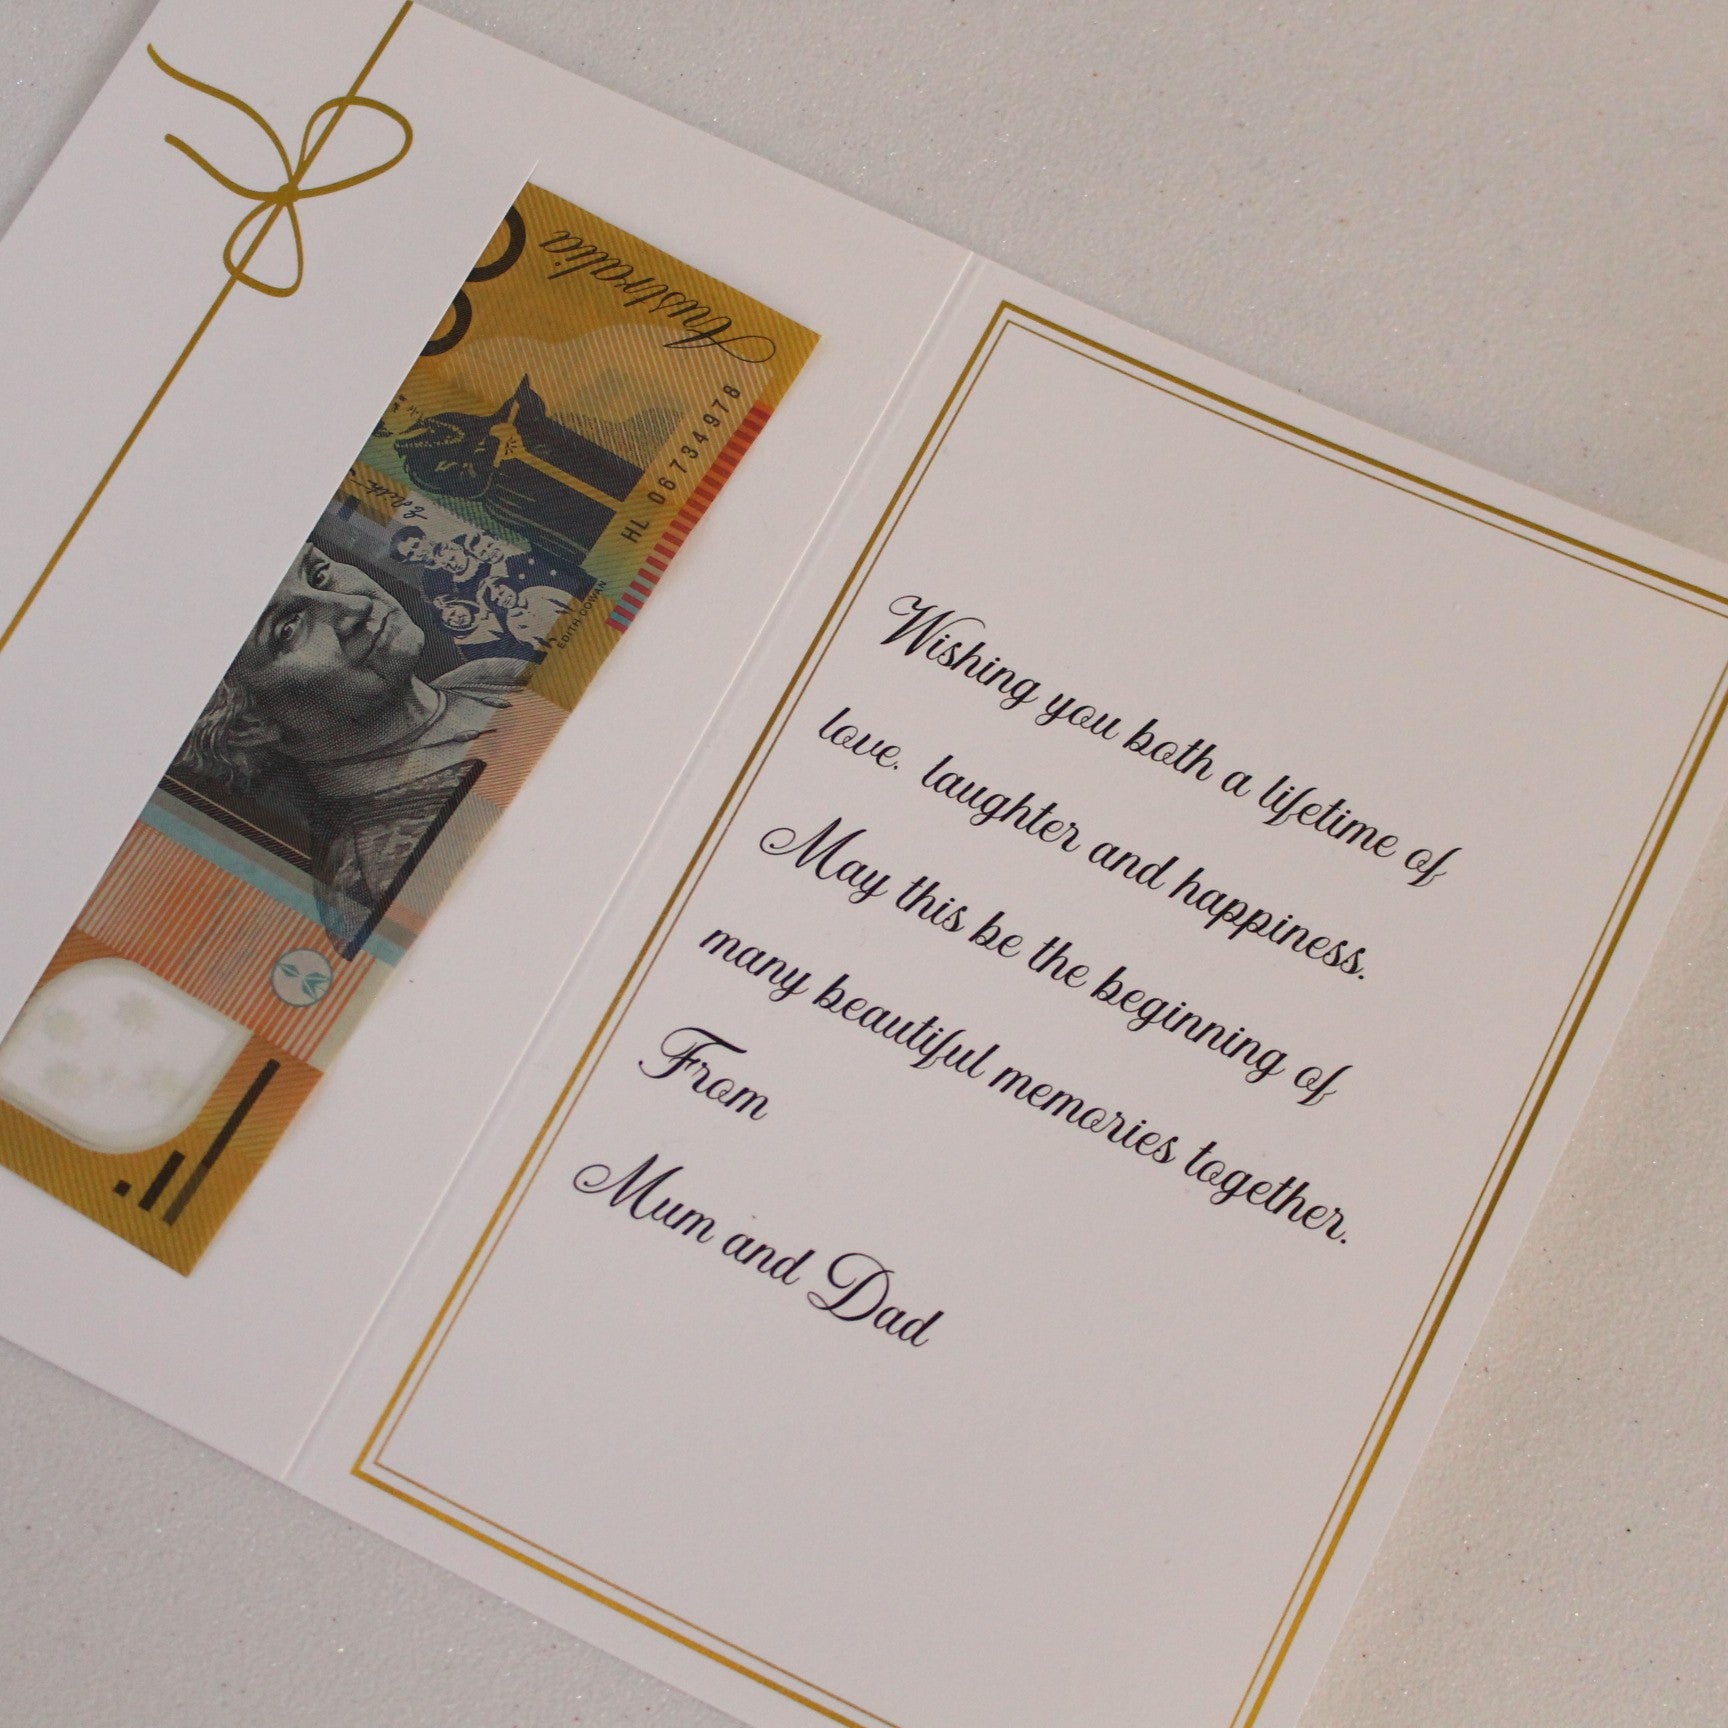 Australia
HL 06734978
EDITH COWAN
Wishing you both a lifetime of
love, laughter and happiness.
May this be the beginning of
many beautiful memories together.
From
Mum and Dad